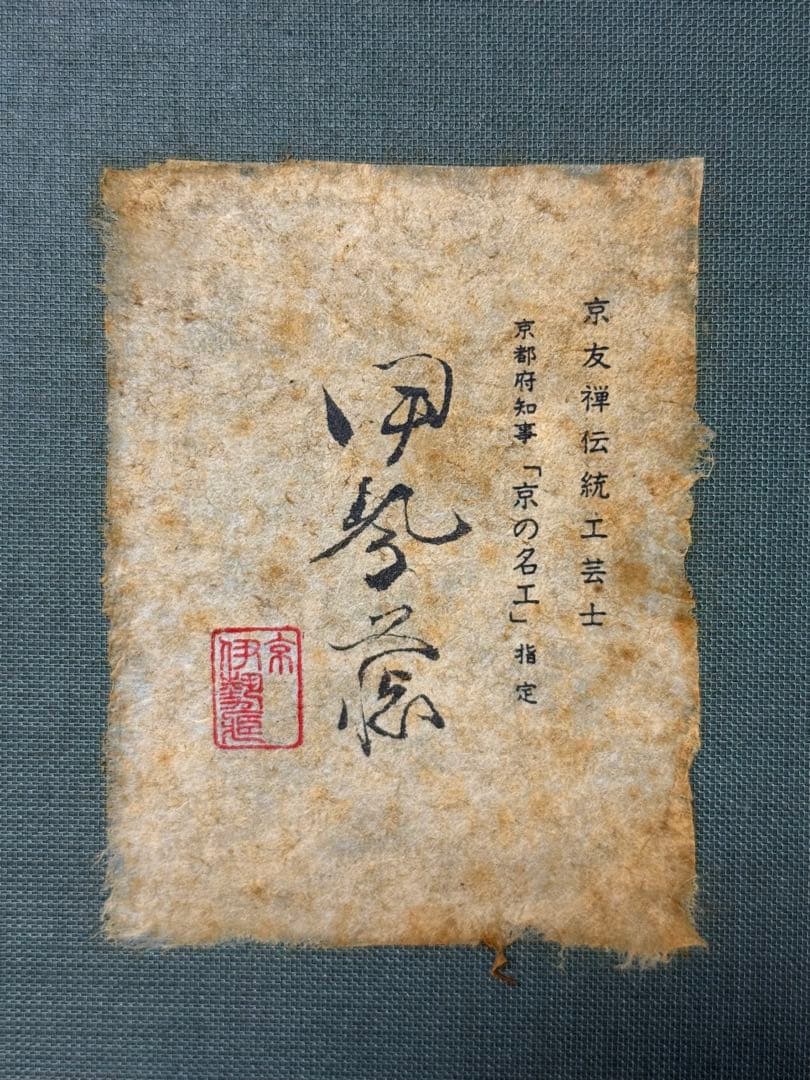 京友禅伝統工芸士
京都府知事「京の名工」指定
伊勢
京
伊勢